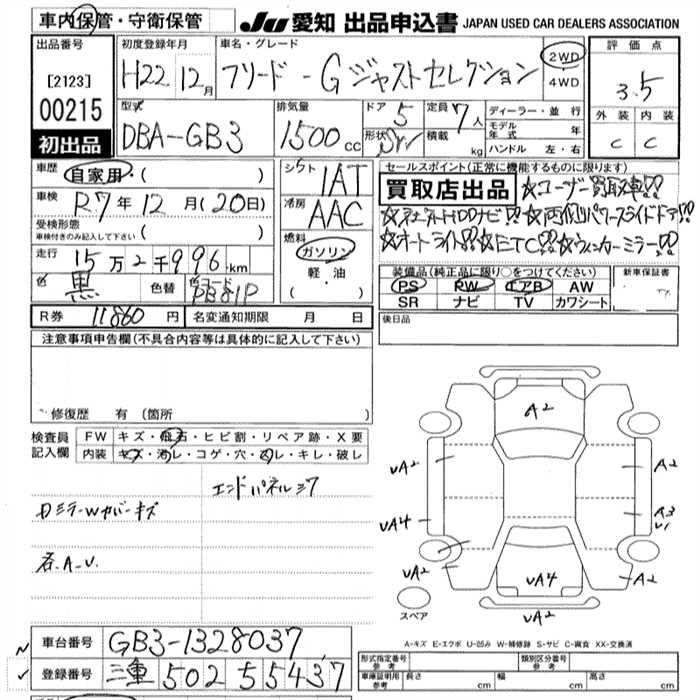 車内保管・守衛保管
JU 愛知 出品申込書 JAPAN USED CAR DEALERS ASSOCIATION
出品番号
[2123]
00215
初出品
初度登録年月
H22年12月
車名・グレード
フリード -Gジャストセレクション
2WD
4WD
評価点
3.5
外装 内装
C C
型式
DBA-GB3
排気量
1500cc
ドア 5
形状 SW
定員 7人
積載 kg
ディーラー・並行
モデル年式 年
ハンドル 左・右
車歴 自家用・( )
車検 R7年12月(20日)
受検形態
車検付きのみ記入して下さい ( )
走行 15万2千996km
色 黒 色替 色コード PB81P
シフト IAT
冷房 AAC
燃料
ガソリン
軽・油
( )
セールスポイント(正常に機能するものに限ります)
買取店出品 ☆ユーザー買取車!!
HDDナビ!!☆両側パワースライドドア!!
☆オートライト!!☆ETC!!☆ウィンカーミラー!!
装備品(純正品に限り○をつけてください)
PS PW エアB AW
SR ナビ TV カワシート
新車保証書
R券 11860円 名変通知期限 月 日
後日品
注意事項申告欄(不具合内容等は具体的に記入して下さい)
修復歴 有(箇所
検査員記入欄
FW キズ・飛石・ヒビ割・リペア跡・X要
内装 キズ・汚レ・コゲ・穴・凹レ・キレ・破レ
エンドパネルミフ
ミラーWカバーキズ
各.A.U.
A2
UA2
A2
UA4
A3
U1
UA2
UA4
A2
UA2
スペア
A-キズ E-エクボ U-凹み W-補修跡 S-サビ C-腐食 XX-交換済
車台番号 GB3-1328037
登録番号 三重 502 5 5437
形式指定番号
参考
類別区分番号
参考
車庫証明用
参考
長さ cm 幅 cm 高さ cm